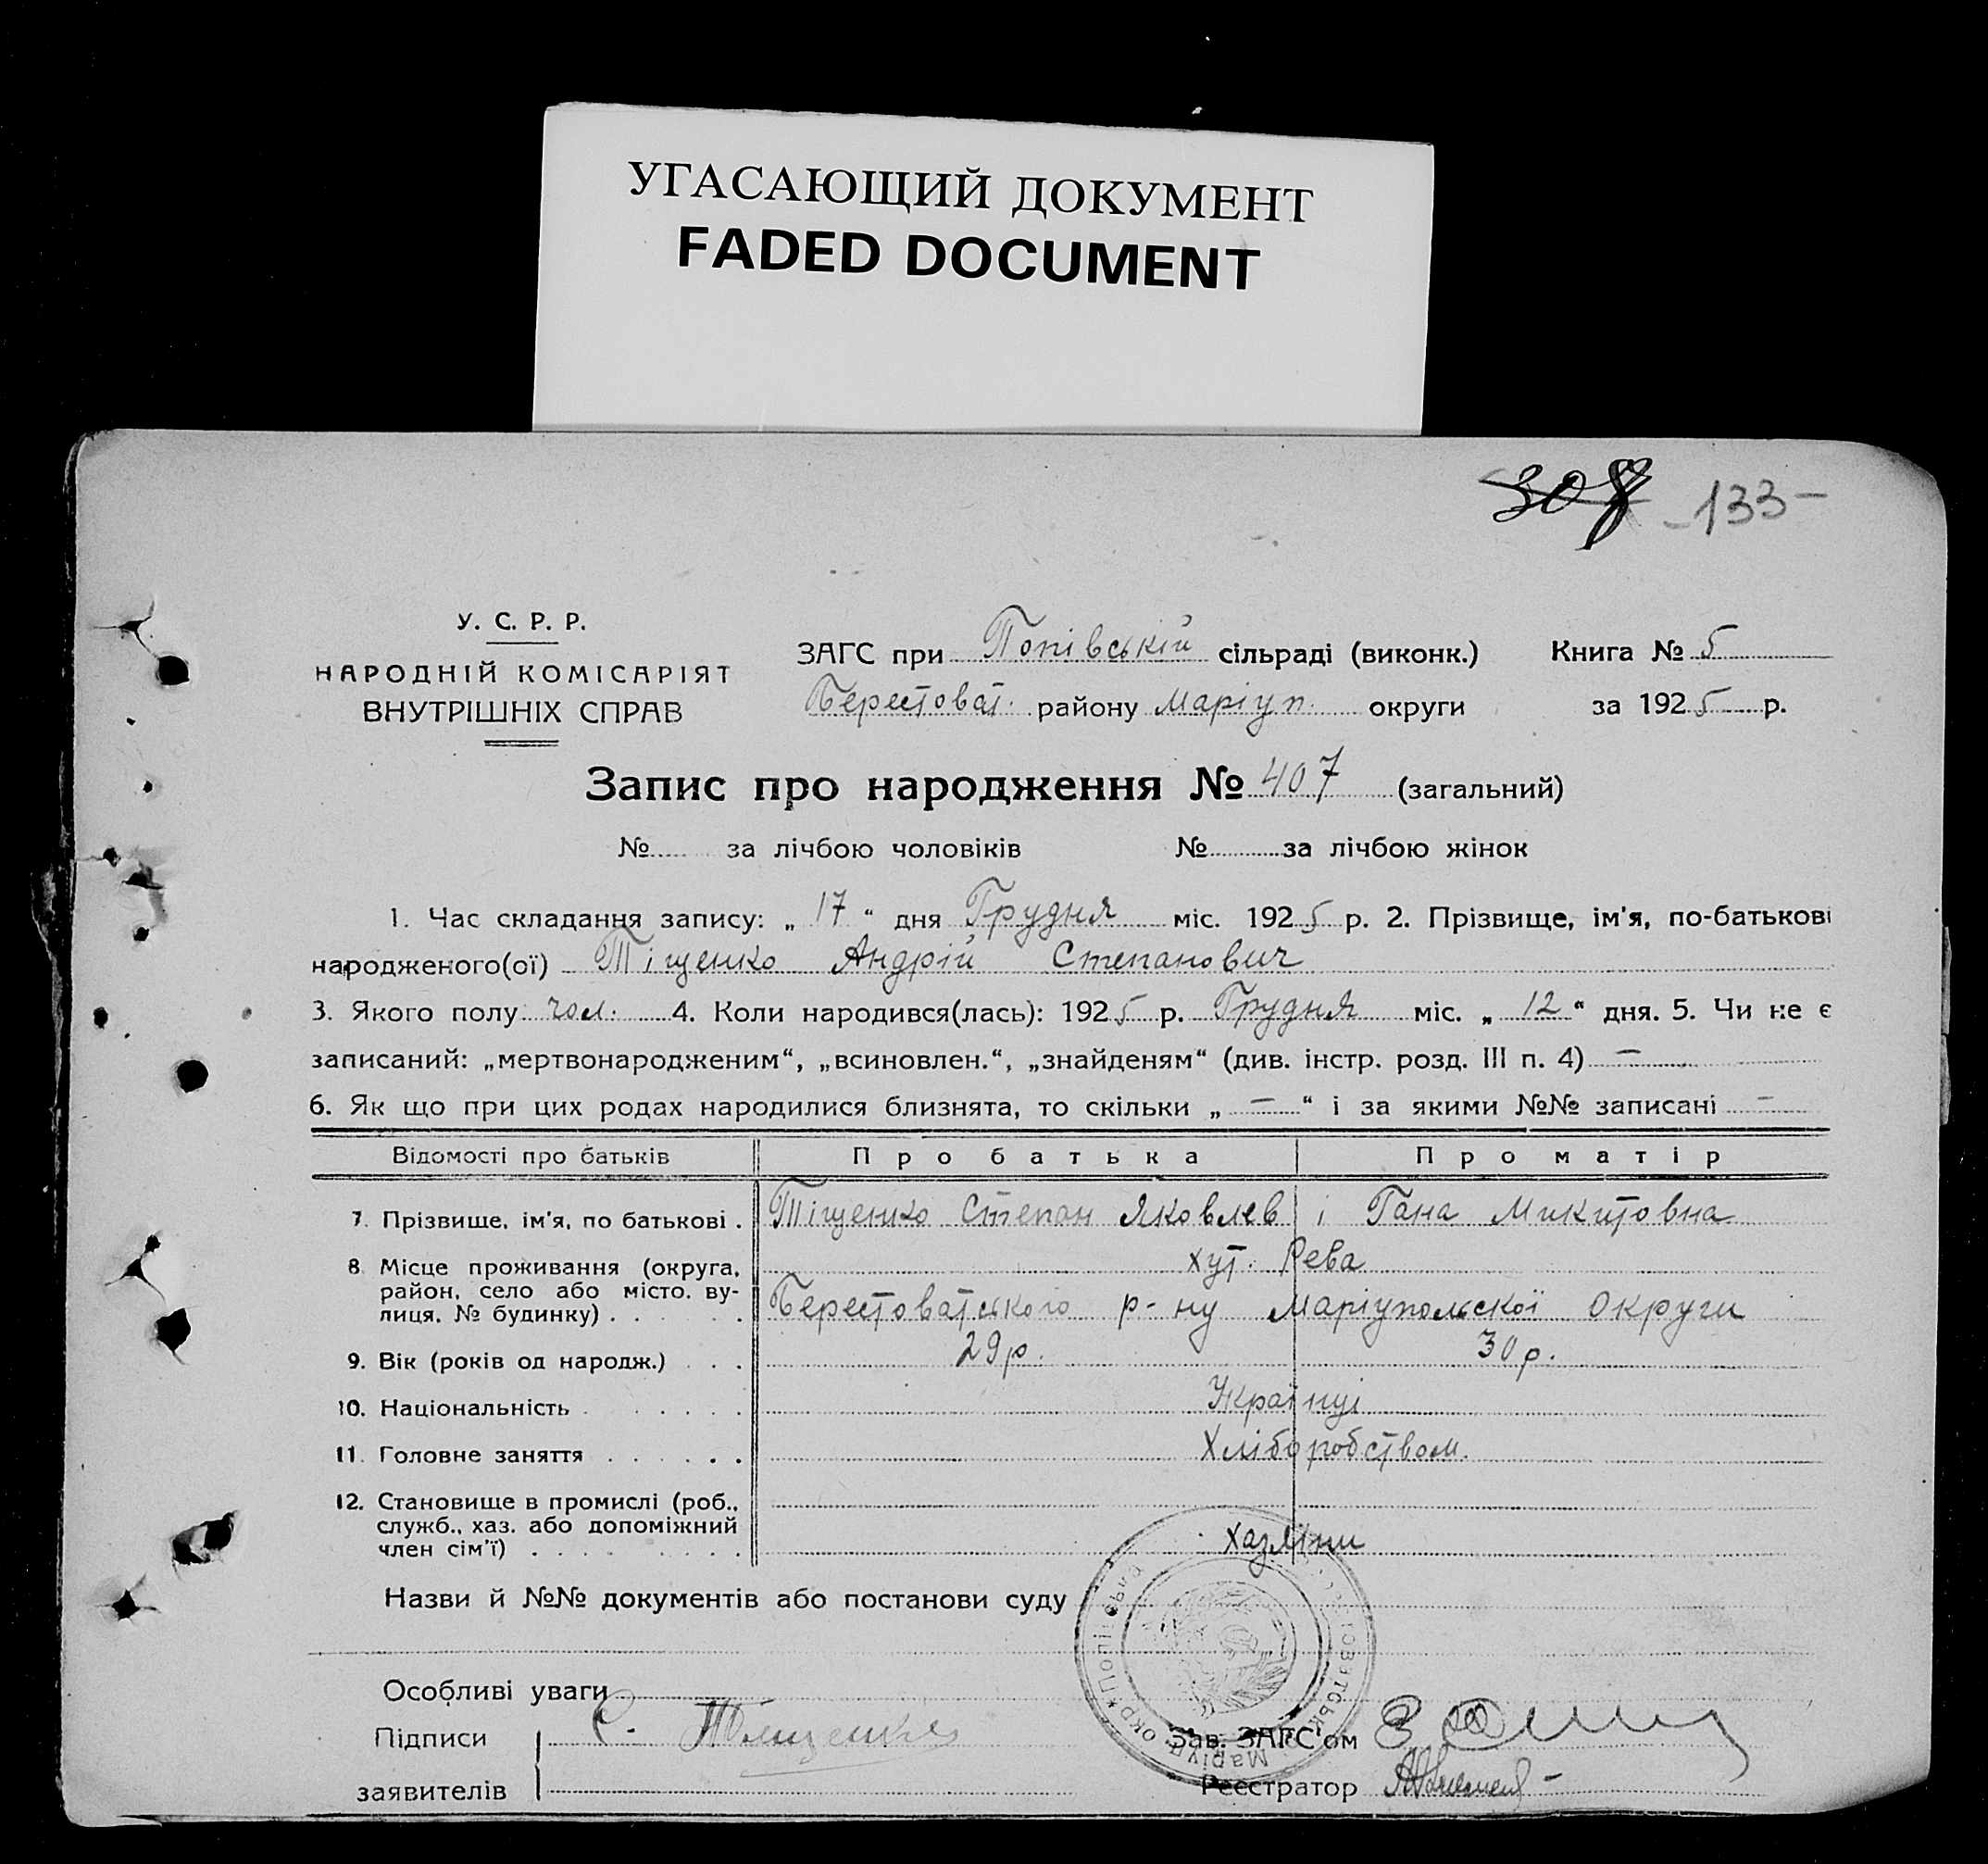 УГАСАЮЩИЙ ДОКУМЕНТ
FADED DOCUMENT
307 -133-
У. С. Р. Р.
НАРОДНІЙ КОМІСАРІЯТ
ВНУТРІШНІХ СПРАВ
ЗАГС при Попівській сільраді (виконк.) Книга № 5
Берестоват. району Маріуп. округи за 1925 р.
Запис про народження № 407 (загальний)
№ за лічбою чоловіків № за лічбою жінок
1. Час складання запису: „ 17 “ дня Грудня міс. 1925 р. 2. Прізвище, ім'я, по-батькові
народженого(ої) Тіщенко Андрій Степанович
3. Якого полу чол. 4. Коли народився(лась): 1925 р. Грудня міс. „ 12 “ дня. 5. Чи не є
записаний: „мертвонародженим“, „всиновлен.“, „знайденям“ (див. інстр. розд. III п. 4) —
6. Як що при цих родах народилися близнята, то скільки „ — “ і за якими №№ записані —
Відомості про батьків Про батька Про матір
7. Прізвище, ім'я, по батькові . Тіщенко Степан Яковлев і Гана Микитовна
8 Місце проживання (округа, район, село або місто, вулиця, № будинку) . . . . . хут. Рева
Берестоватського р-ну Маріупольскої округи
9. Вік (років од народж.) . . . 29 р. 30 р.
10. Національність . . . . . . . Українці
11. Головне заняття . . . . . . Хліборобством.
12. Становище в промислі (роб., служб., хаз. або допоміжний член сім'ї) . . . . . . . . . Хазяїни
Назви й №№ документів або постанови суду
Особливі уваги
Підписи С. Тіщенко
заявителів
Зав. ЗАГС'ом
Реєстратор